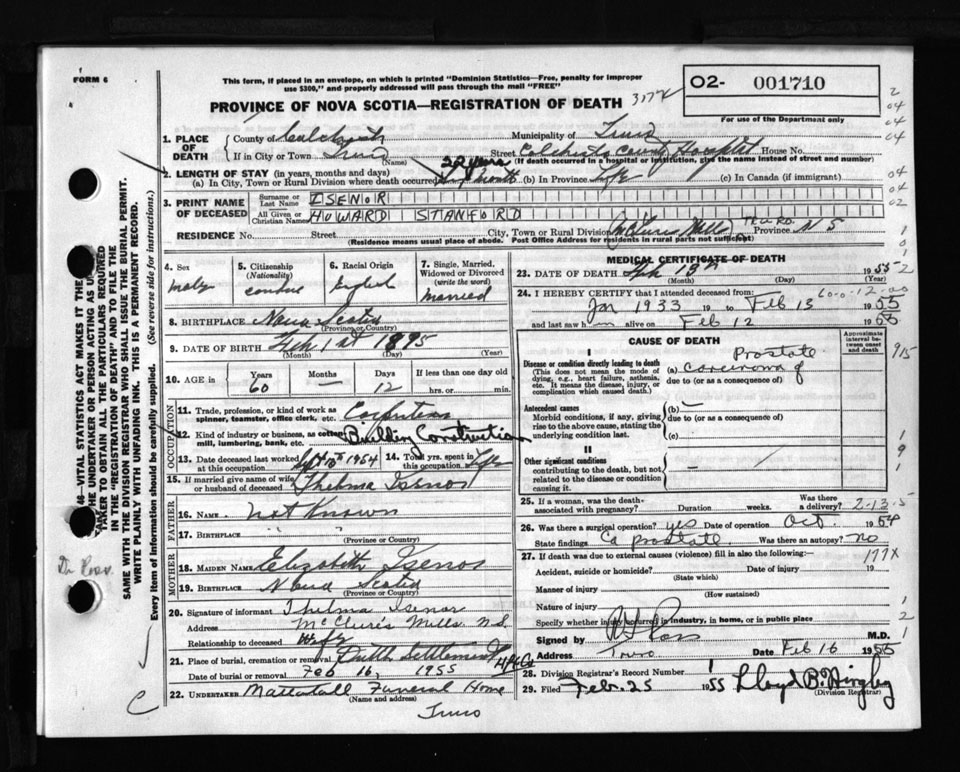 FORM 6
This form, if placed in an envelope, on which is printed "Dominion Statistics—Free, penalty for improper
use $300," and properly addressed will pass through the mail "FREE"
PROVINCE OF NOVA SCOTIA—REGISTRATION OF DEATH
O2- 001710
For use of the Department only
1. PLACE OF DEATH
County of Colchester Municipality of Truro
If in City or Town Truro (Name) Street Colchester County Hospital House No.
(If death occurred in a hospital or institution, give the name instead of street and number)
2. LENGTH OF STAY (in years, months and days) 22 years
(a) In City, Town or Rural Division where death occurred month (b) In Province Life (c) In Canada (if immigrant)
3. PRINT NAME OF DECEASED
Surname or Last Name ISENOR
All Given or Christian Names HOWARD STANFORD
RESIDENCE No. Street City, Town or Rural Division McClures Mills Truro Province N S
(Residence means usual place of abode. Post Office Address for residents in rural parts not sufficient)
4. Sex male
5. Citizenship (Nationality)
6. Racial Origin English
7. Single, Married, Widowed or Divorced (write the word) Married
8. BIRTHPLACE Nova Scotia
(Province or Country)
9. DATE OF BIRTH Feb 1st 1895
(Month) (Day) (Year)
10. AGE in Years 60 Months — Days 12 If less than one day old hrs. or min.
OCCUPATION
11. Trade, profession, or kind of work as spinner, teamster, office clerk, etc. Carpenter
12. Kind of industry or business, as cotton mill, lumbering, bank, etc. Building Construction
13. Date deceased last worked at this occupation Sept 10th 1954 14. Total yrs. spent in this occupation Life
15. If married give name of wife or husband of deceased Thelma Isenor
FATHER
16. Name Not Known
17. BIRTHPLACE " "
(Province or Country)
MOTHER
18. MAIDEN NAME Elizabeth Isenor
19. BIRTHPLACE Nova Scotia
(Province or Country)
20. Signature of informant Thelma Isenor
Address McClure's Mills N.S.
Relationship to deceased Wife
21. Place of burial, cremation or removal Settlement
Date of burial or removal Feb 16, 1955
22. UNDERTAKER Mattatall Funeral Home
(Name and address)
Truro
MEDICAL CERTIFICATE OF DEATH
23. DATE OF DEATH Feb 13th 1955
(Month) (Day) (Year)
24. I HEREBY CERTIFY that I attended deceased from:
Jan 1933 19 to Feb 13 1955
and last saw him alive on Feb 12 1955
CAUSE OF DEATH
Approximate interval between onset and death
I
Disease or condition directly leading to death
(This does not mean the mode of dying, e.g., heart failure, asthenia, etc. It means the disease, injury, or complication which caused death.)
(a) Carcinoma of Prostate
due to (or as a consequence of)
Antecedent causes
Morbid conditions, if any, giving rise to the above cause, stating the underlying condition last.
(b) —
due to (or as a consequence of)
(c)
II
Other significant conditions
contributing to the death, but not related to the disease or condition causing it.
—
25. If a woman, was the death associated with pregnancy? Duration weeks. Was there a delivery? 2-13-5
26. Was there a surgical operation? yes Date of operation Oct. 1954
State findings Ca prostate Was there an autopsy? No
27. If death was due to external causes (violence) fill in also the following:— 177X
Accident, suicide or homicide? Date of injury 19
(State which)
Manner of injury
(How sustained)
Nature of injury
Specify whether injury occurred in industry, in home, or in public place
Signed by M.D.
Address Truro Date Feb 16 1955
28. Division Registrar's Record Number
29. Filed Feb. 25 1955
(Division Registrar)
46—VITAL STATISTICS ACT MAKES IT THE
THE UNDERTAKER OR PERSON ACTING AS
TAKER TO OBTAIN ALL THE PARTICULARS REQUIRED
IN THE "REGISTRATION OF DEATH" AND TO FILE THE
SAME WITH THE DIVISION REGISTRAR WHO SHALL ISSUE THE BURIAL PERMIT.
WRITE PLAINLY WITH UNFADING INK. THIS IS A PERMANENT RECORD.
Every item of information should be carefully supplied. (See reverse side for instructions.)
Dr Ross.